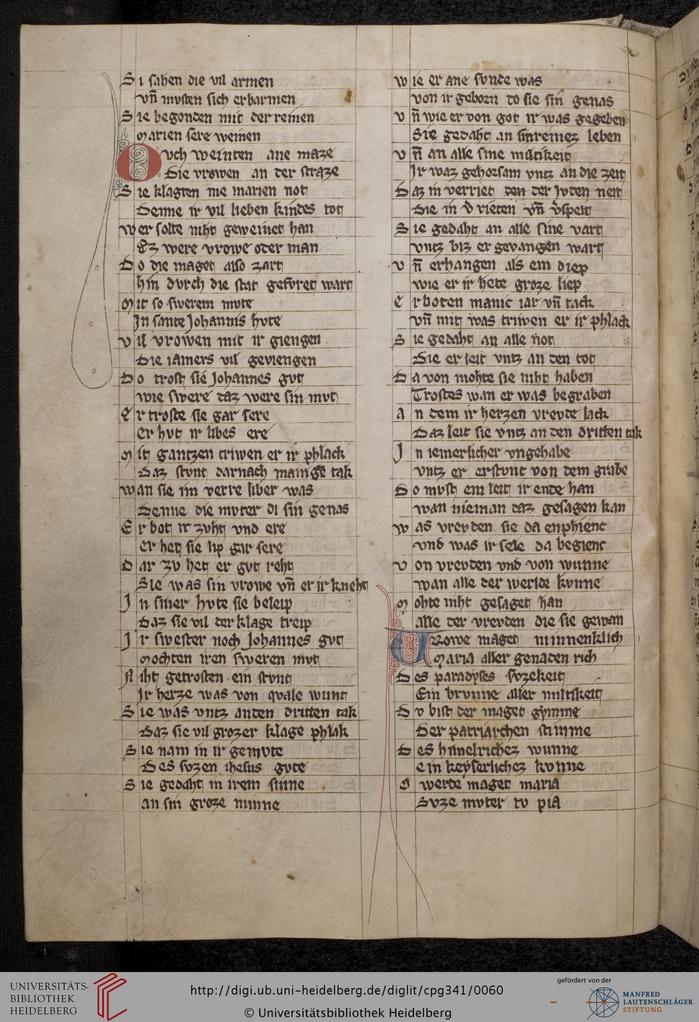 Si sahen die vil armen
vn̄ mvsten sich erbarmen
Sie begonden mit der reinen
Marien sere weinen
Ovch weinten ane maze
Die vrowen an der straze
Sie klagten me marien not
Denne ir vil lieben kindes tot
wer solte niht geweinet han
Ez were vrowe oder man
Do die maget also zart
hin dvrch die stat gefvret wart
Mit so swerem mvte
In sante Johannis hvte
Vil vrowen mit ir giengen
Die iamers vil geviengen
Do trost sie Johannes gvt
wie swere daz were sin mvt
Er troste sie gar sere
Er hvt ir libes ere
Mit gantzen triwen er ir phlack
Daz stvnt darnach manige tak
wan sie im verre liber was
Denne die mvter di sin genas
Er bot ir zvht vnd ere
er het sie lip gar sere
Dar zv het er gvt reht
Sie was sin vrowe vn̄ er ir kneht
In siner hvte sie beleip
Daz sie vil der klage treip
Ir swester noch Johannes gvt
Mochten iren sweren mvt
Niht getrosten ein stvnt
Ir herze was von qvale wunt
Sie was vntz an den dritten tak
Daz sie vil grozer klage phlak
Sie nam in ir gemvte
Des svzen ihesus gvte
Sie gedaht in irem sinne
an sin groze minne
wie er ane svnde was
von ir geborn do sie sin genas
vn̄ wie er von got ir was gegeben
Sie gedaht an sin reinez leben
vn̄ an alle sine miltikeit
Ir waz gehorsam vntz an die zeit
Daz in verriet den der Jvden neit
Die in v̄rieten vn̄ v̄speit
Sie gedaht an alle sine vart
vntz biz er gevangen wart
vn̄ erhangen als ein diep
wie er ir hete groze liep
Erboten manic iar vn̄ tack
vn̄ mit was triwen er ir phlack
Sie gedaht an alle not
Die er leit vntz an den tot
Da von mohte sie niht haben
Trostes wan er was begraben
an dem ir herzen vrevde lack
Daz leit sie vntz an den dritten tak
In iemerlicher vngehabe
vntz er erstvnt von dem grabe
Do mvst ein leit ir ende han
wan nieman daz gesagen kan
was vrevden sie da enphienc
vnd was ir sele da begienc
von vrevden vnd von wunne
wan alle der werlde kvnne
Mohte niht gesaget han
alle der vrevden die sie gewan
Vrowe maget minnenklich
Maria aller genaden rich
Des paradyses svzekeit
Ein brvnne aller miltikeit
Dv bist der maget gymme
Der patriarchen stimme
Des himelrichez wunne
ein keyserlichez kvnne
O werde maget maria
Svze mvter tv pia
UNIVERSITÄTS-
BIBLIOTHEK
HEIDELBERG
http://digi.ub.uni-heidelberg.de/diglit/cpg341/0060
© Universitätsbibliothek Heidelberg
gefördert von der
MANFRED
LAUTENSCHLÄGER
STIFTUNG